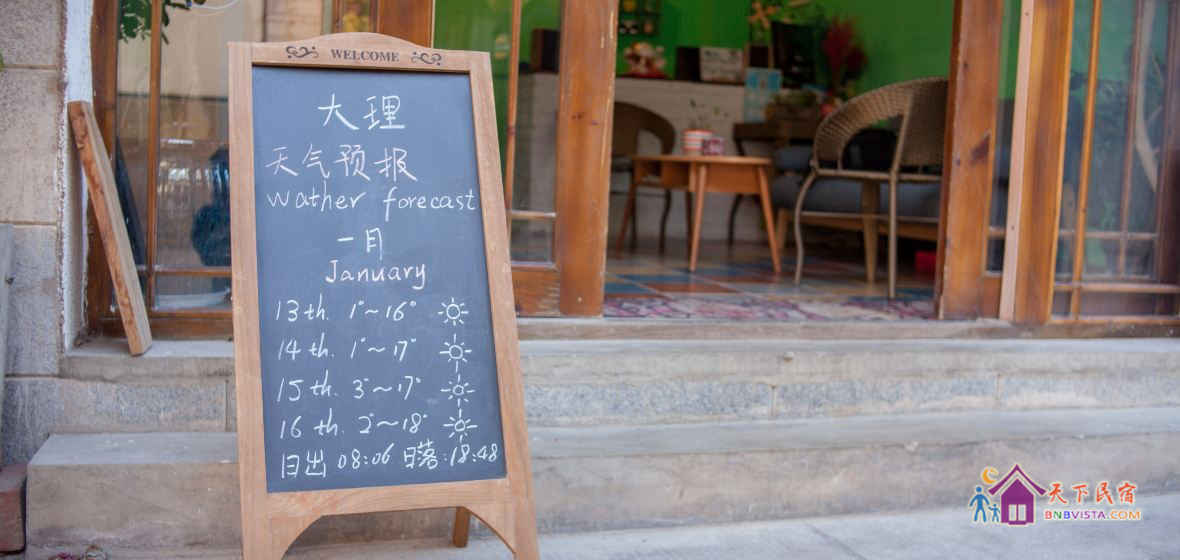 WELCOME
大理
天气预报
Wather forecast
一月
January
13th. 1°~16°
14th. 1°~17°
15th. 3°~17°
16th. 2°~18°
日出 08:06 日落:18:48
天下民宿
BNBVISTA.COM